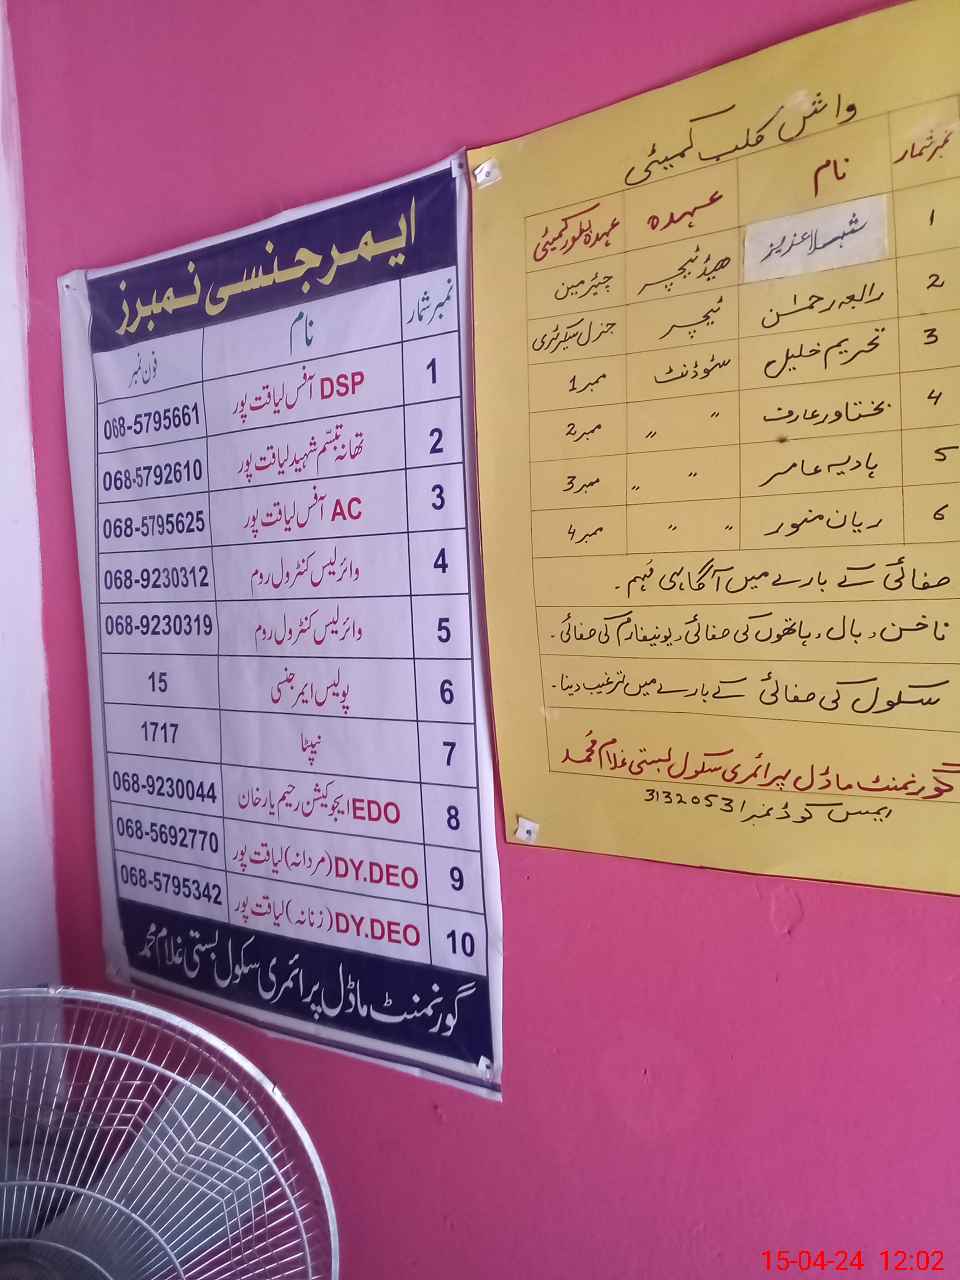 ایمرجنسی نمبرز
نمبر شمار نام فون نمبر
1 DSP آفس لیاقت پور 068-5795661
2 تھانہ تبسّم شہید لیاقت پور 068-5792610
3 AC آفس لیاقت پور 068-5795625
4 وائرلیس کنٹرول روم 068-9230312
5 وائرلیس کنٹرول روم 068-9230319
6 پولیس ایمرجنسی 15
7 نیپٹا 1717
8 EDO ایجوکیشن رحیم یار خان 068-9230044
9 DY.DEO (مردانہ) لیاقت پور 068-5692770
10 DY.DEO (زنانہ) لیاقت پور 068-5795342
گورنمنٹ ماڈل پرائمری سکول بستی غلام محمد
واش کلب کمیٹی
نمبر شمار نام عہدہ عہدہ بطور کمیٹی
1 شہلا عزیز ہیڈ ٹیچر چئیرمین
2 رابعہ رحمٰن ٹیچر جنرل سیکرٹری
3 تحریم خلیل سٹوڈنٹ ممبر 1
4 بختاور عارف " " ممبر 2
5 ہادیہ عامر " " ممبر 3
6 ریان منور " " ممبر 4
صفائی کے بارے میں آگاہی مُہم۔
ناخن، بال، ہاتھوں کی صفائی، یونیفارم کی صفائی۔
سکول کی صفائی کے بارے میں ترغیب دینا۔
گورنمنٹ ماڈل پرائمری سکول بستی غلام مُحمد
ایمس کوڈ نمبر 31320531
15-04-24 12:02